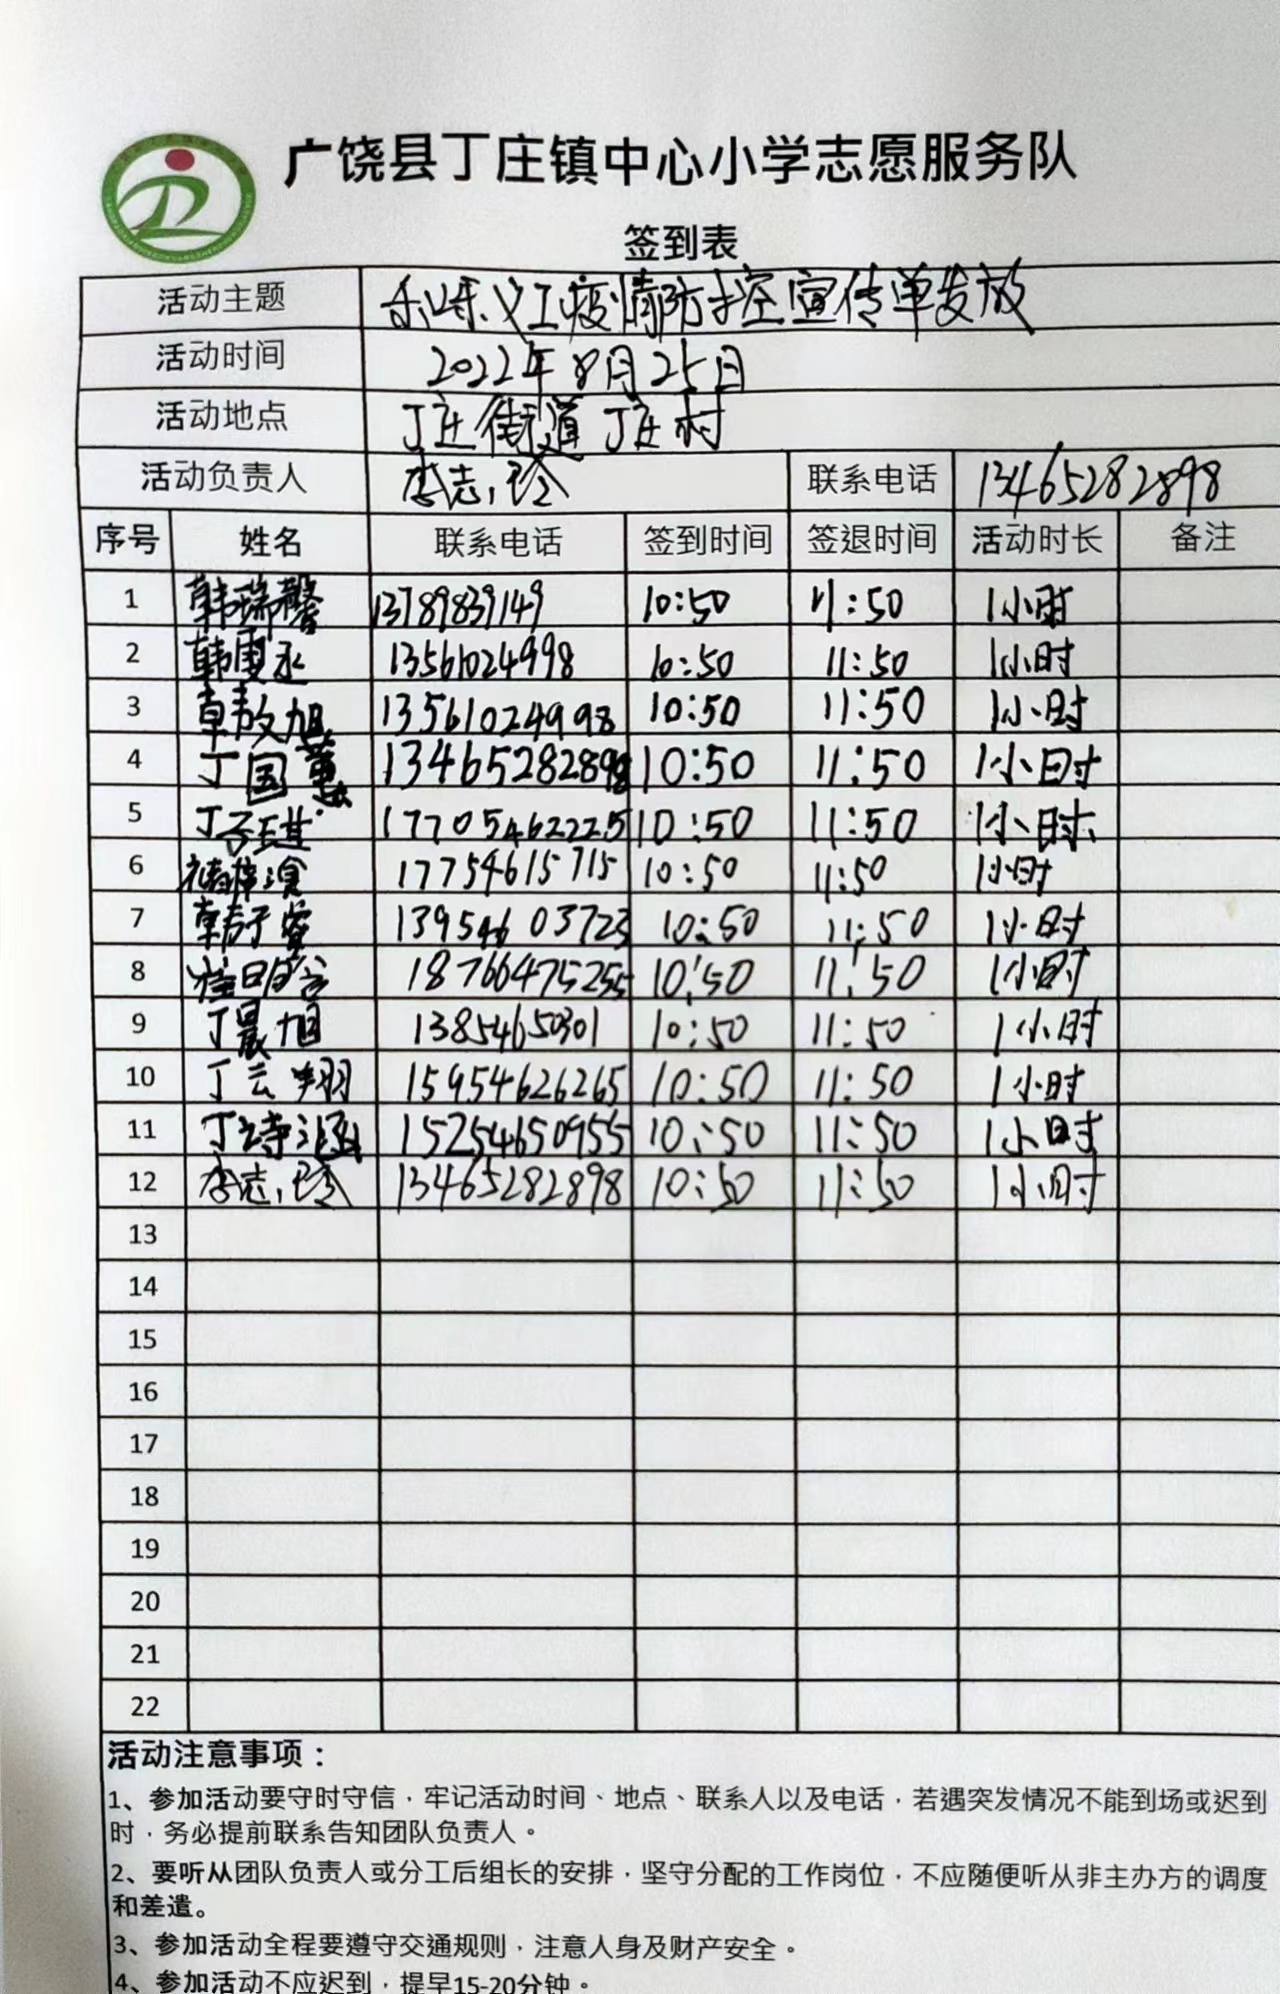 广饶县丁庄镇中心小学志愿服务队
签到表
活动主题 乐安义工疫情防控宣传单发放
活动时间 2022年8月25日
活动地点 丁庄街道丁庄村
活动负责人 李志玲 联系电话 13465282898
序号 姓名 联系电话 签到时间 签退时间 活动时长 备注
1 韩瑞馨 13789839149 10:50 11:50 1小时
2 韩雯丞 13561024998 10:50 11:50 1小时
3 韩放旭 13561024998 10:50 11:50 1小时
4 丁国蕙 13465282898 10:50 11:50 1小时
5 丁子琪 17705462225 10:50 11:50 1小时
6 17754615715 10:50 11:50 1小时
7 韩子睿 13954603723 10:50 11:50 1小时
8 18766475255 10:50 11:50 1小时
9 丁晨旭 13854650301 10:50 11:50 1小时
10 丁云翔 15954626265 10:50 11:50 1小时
11 丁诗涵 15254650955 10:50 11:50 1小时
12 李志玲 13465282898 10:50 11:50 1小时
13
14
15
16
17
18
19
20
21
22
活动注意事项：
1、参加活动要守时守信，牢记活动时间、地点、联系人以及电话，若遇突发情况不能到场或迟到
时，务必提前联系告知团队负责人。
2、要听从团队负责人或分工后组长的安排，坚守分配的工作岗位，不应随便听从非主办方的调度
和差遣。
3、参加活动全程要遵守交通规则，注意人身及财产安全。
4、参加活动不应迟到，提早15-20分钟。